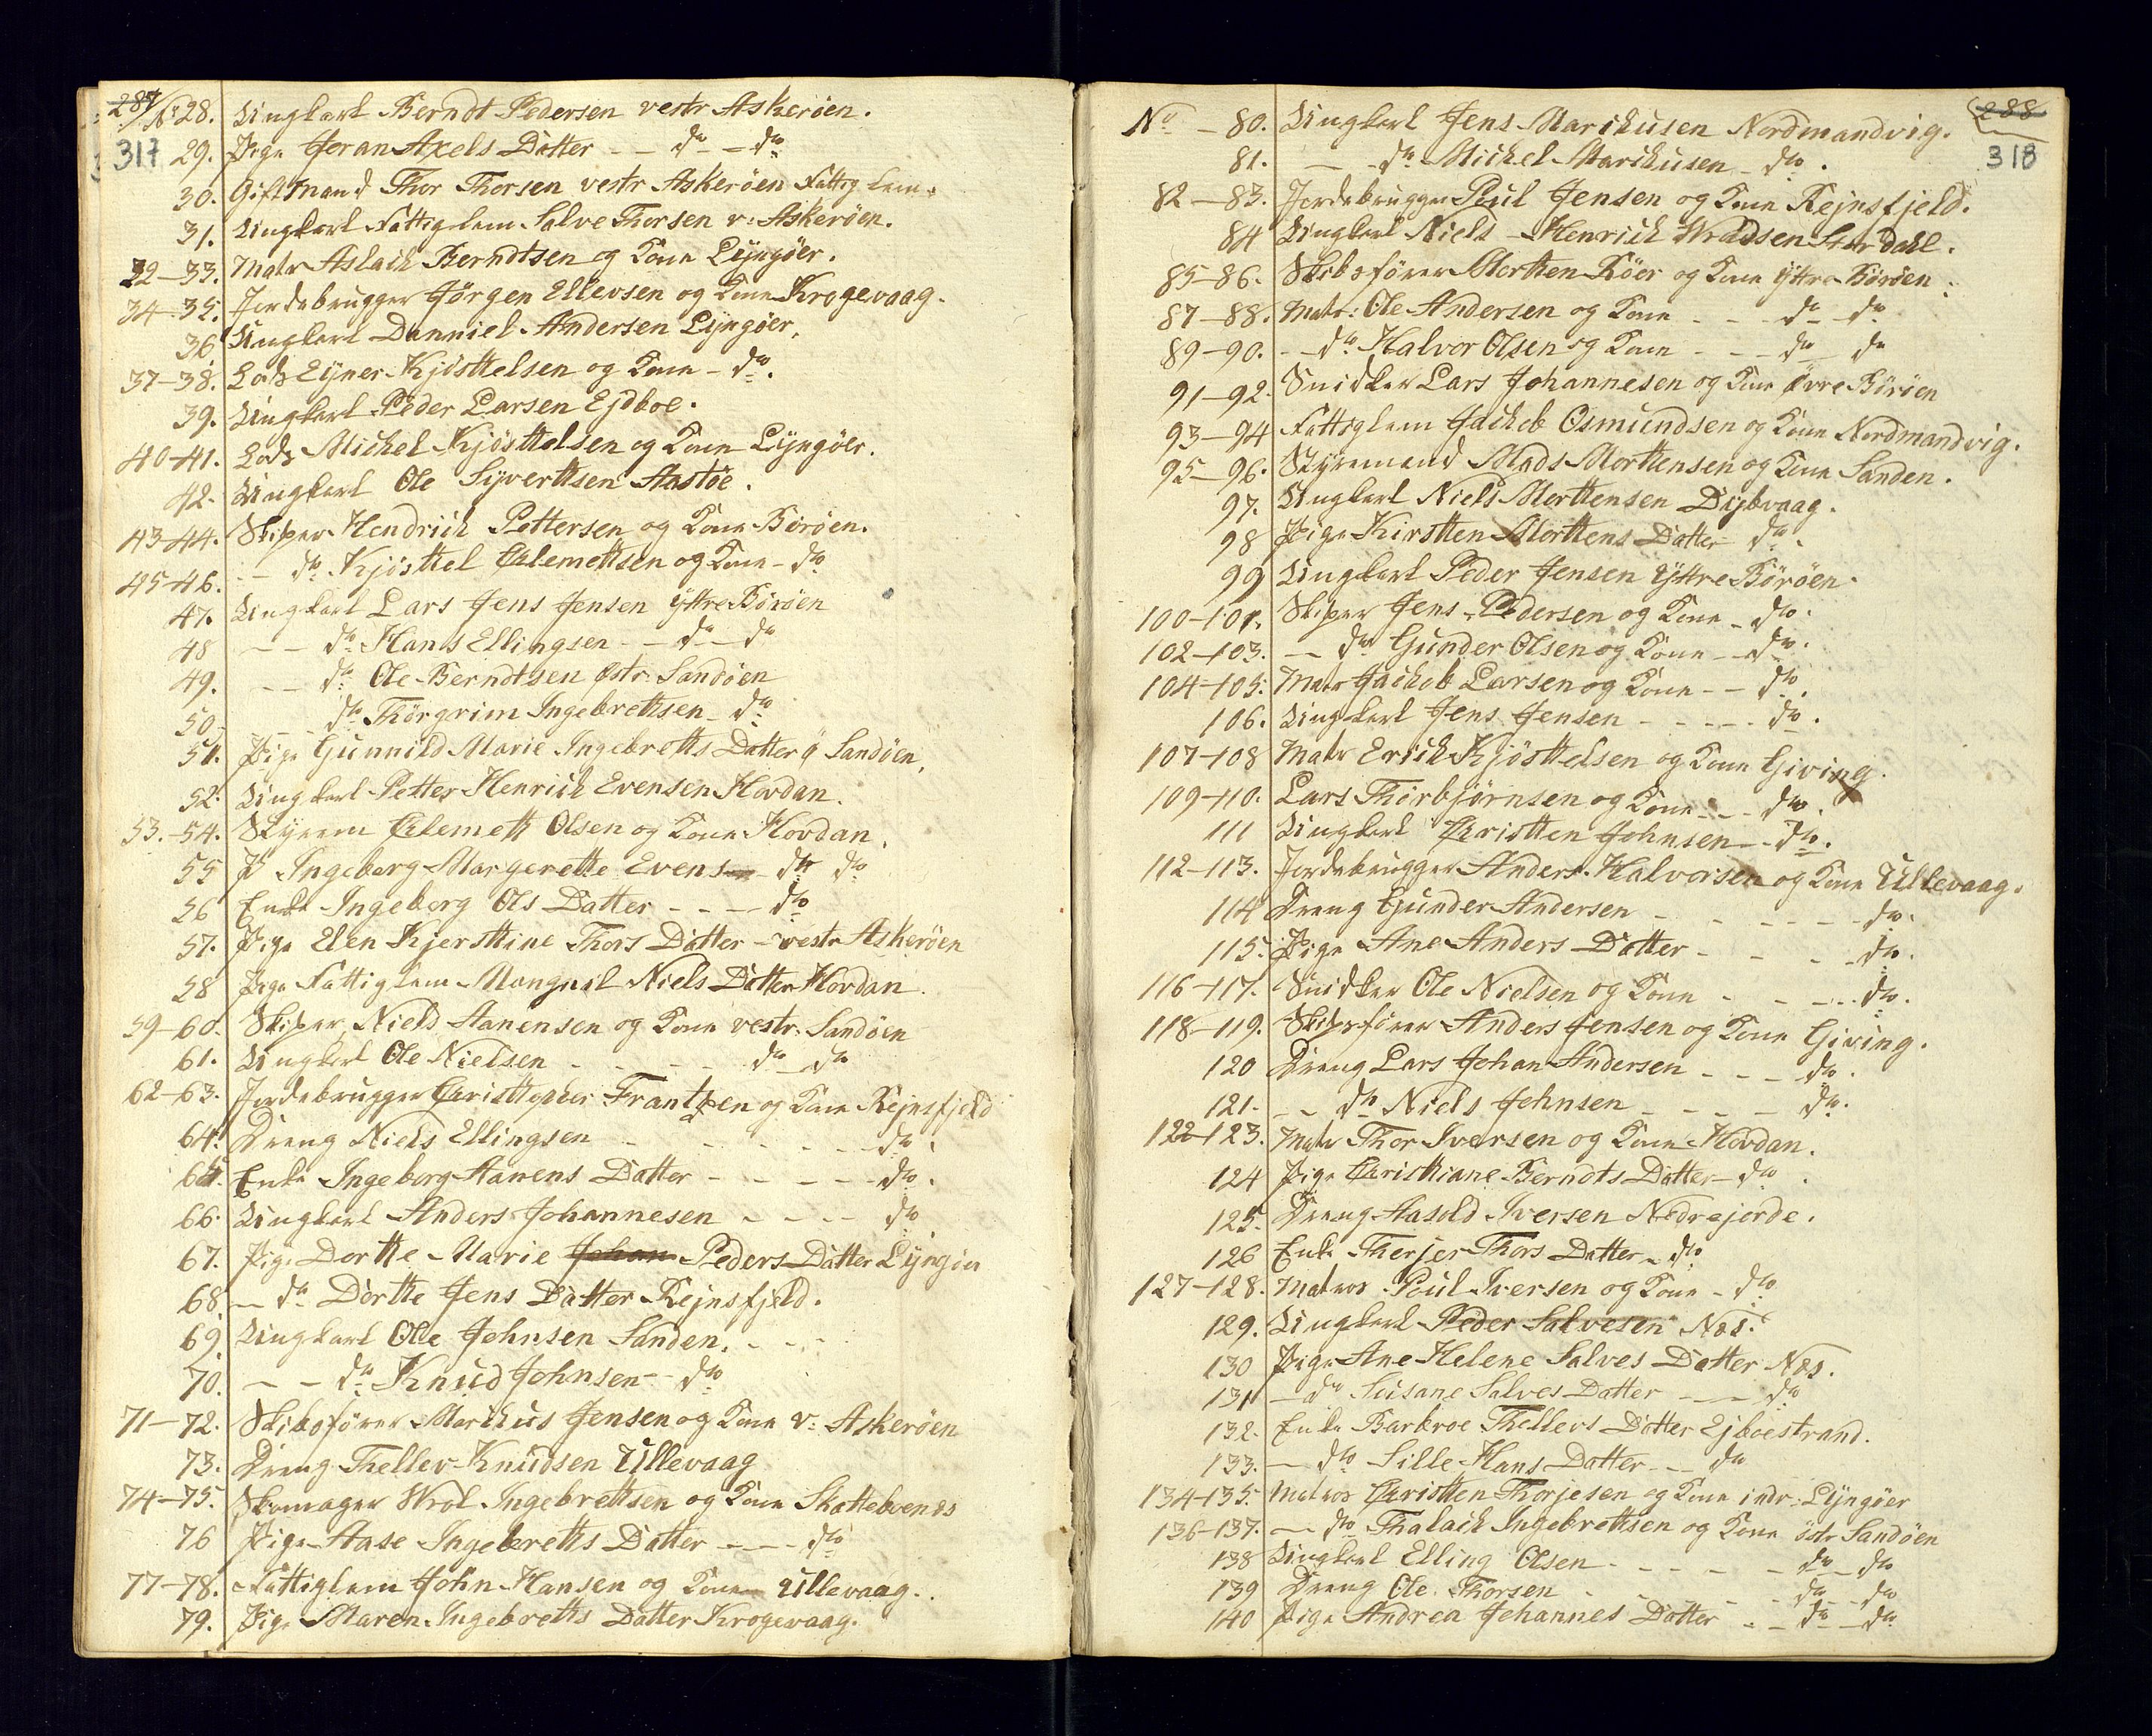 287
317
No 28. Ungkarl Berndt Pedersen vestr Askerøen.
29. Pige Joran Axels Datter — — do — do
30. Gift Mand Thor Thorsen vestr Askerøen Fattig Lem.
31. Ungkarl Fattiglem Salve Thorsen v: Askerøen.
32—33. Matr Aslach Berndtsen og Kone Lyngøer.
34—35. Jordebrugger Jørgen Ellevsen og Kone Krogevaag.
36 Ungkarl Danniel Andersen Lyngøer,
37—38. Lods Eyner Kjøsttelsen og Kone — do.
39. Ungkarl Peder Larsen Ejdboe.
40—41. Lods Michel Kjøsttelsen og Kone Lyngøer.
42. Ungkarl Ole Syverttsen Aastøe.
43—44. Skiper Hendrich Pettersen og Kone Borøen.
45—46. — do Kjøsttel Clemettsen og Kone — do
47. Ungkarl Lars Jens Jensen Yttre Borøen
48 — — do Hans Ellingsen — — do — do
49. — — do Ole Berndtsen østr: Sandøen
50. — do Thorgrim Ingebrettsen — do
51. Pige Gunnild Marie Ingebretts Datter ø Sandøen,
52. Ungkarl Petter Henrich Evensen Hovdan.
53.—54. Styrem Clemett Olsen og Kone Hovdan.
55 P Ingeborg Margerette Evens — do do
56 Enke Ingeborg Ols Datter — — — do
57. Pige Elen Kjersttine Thors Datter — vestr Askerøen
58 Pige Fattiglem Mangnil Niels Datter Hovdan.
59—60. Skiper Niels Aanensen og Kone vestr: Sandøen
61. Ungkarl Ole Nielsen — — — — do — do
62—63. Jordebrugger Christtopher Frantzen og Kone Rejnsfjeld
64. Dreng Niels Ellingsen — — — — — do.
65. Enke Ingeborg Aanens Datter — — — — do.
66. Ungkarl Anders Johannesen — — — — do
67. Pige Dortte Marie Johan Peders Datter Lyngøer
68 — do Dortte Jens Datter Rejnsfjeld.
69. Ungkarl Ole Johnsen Sanden.
70. — — do Knud Johnsen — do
71—72. Skibsfører Marchus Jensen og Kone v: Askerøen
73. Dreng Thellev Knudsen Ullevaag
74—75. Skomager Wrol Ingebrettsen og Kone Skottebvenes
76 Pige Aase Ingebretts Datter — — — do
77—78. Fattiglem John Hansen og Kone Ullevaag.
79. Pige Maren Ingebretts Datter Krogevaag.
288
318
No — 80. Ungkarl Jens Marchusen Nordmandvig.
81. — — do Michel Marchusen — do.
82—83. Jordebrugger Poul Jensen og Kone Rejnsfjeld.
84 Ungkarl Niels Henrich Wradsen Stordahl.
85—86. Skibsfører Mortten Röer og Kone Yttre Borøen.
87—88. Matr: Ole Andersen og Kone — — — do — do
89—90. — — do Halvor Olsen og Kone — — — do do
91—92. Snidker Lars Johannesen og Kone Øvre Borøen
93—94 Fattiglem Jachob Osmundsen og Kone Nordmandvig.
95—96. Styremand Mads Morttensen og Kone Sanden.
97. Ungkarl Niels Morttensen Dybvaag.
98 Pige Kirstten Morttens Datter do.
99 Ungkarl Peder Jensen Yttre Borøen.
100—101. Skiper Jens Pedersen og Kone — do.
102—103. — do Gunder Olsen og Kone — do.
104—105. Matr Jachob Larsen og Kone — — do.
106. Ungkarl Jens Jensen — — — — do.
107—108 Matr Erich Kjøsttelsen og Kone Giving.
109—110. Lars Thorbjørnsen og Kone — — do.
111 Ungkarl Christten Johnsen — do.
112—113. Jordebrugger Anders Halvorsen og Kone Ullevaag.
114 Dreng Gunder Andersen — — — — — do.
115. Pige Ane Anders Datter — — — do.
116—117. Snidker Ole Nielsen og Kone — — — do.
118—119. Skibsfører Anders Jensen og Kone Giving.
120 Dreng Lars Johan Andersen — — — do.
121. — — do Niels Johnsen — — — — do.
122—123. Matr Thor Iversen og Kone Hovdan.
124 Pige Christtiane Berndts Datter — do.
125. Dreng Aasold Iversen Nedrejorde.
126 Enke Therjer Thors Datter — do
127—128. Matros Poul Iversen og Kone — do
129. Ungkarl Peder Salvesen Næs.
130 Pige Ane Helene Salves Datter Næs.
131 — do Susane Salves Datter — — do
132. Enke Barbroe Thellevs Datter Ejboestrand.
133. — do Sille Hans Datter — — do
134—135. Matros Christten Thorjesen og Kone indr: Lyngøer
136—137. — do Thalach Ingebrettsen og Kone östr Sandøen
138 Ungkarl Elling Olsen — — — — do — do
139 Dreng Ole Thorsen — — — — do — do
140 Pige Andrea Johannes Datter — — do — do